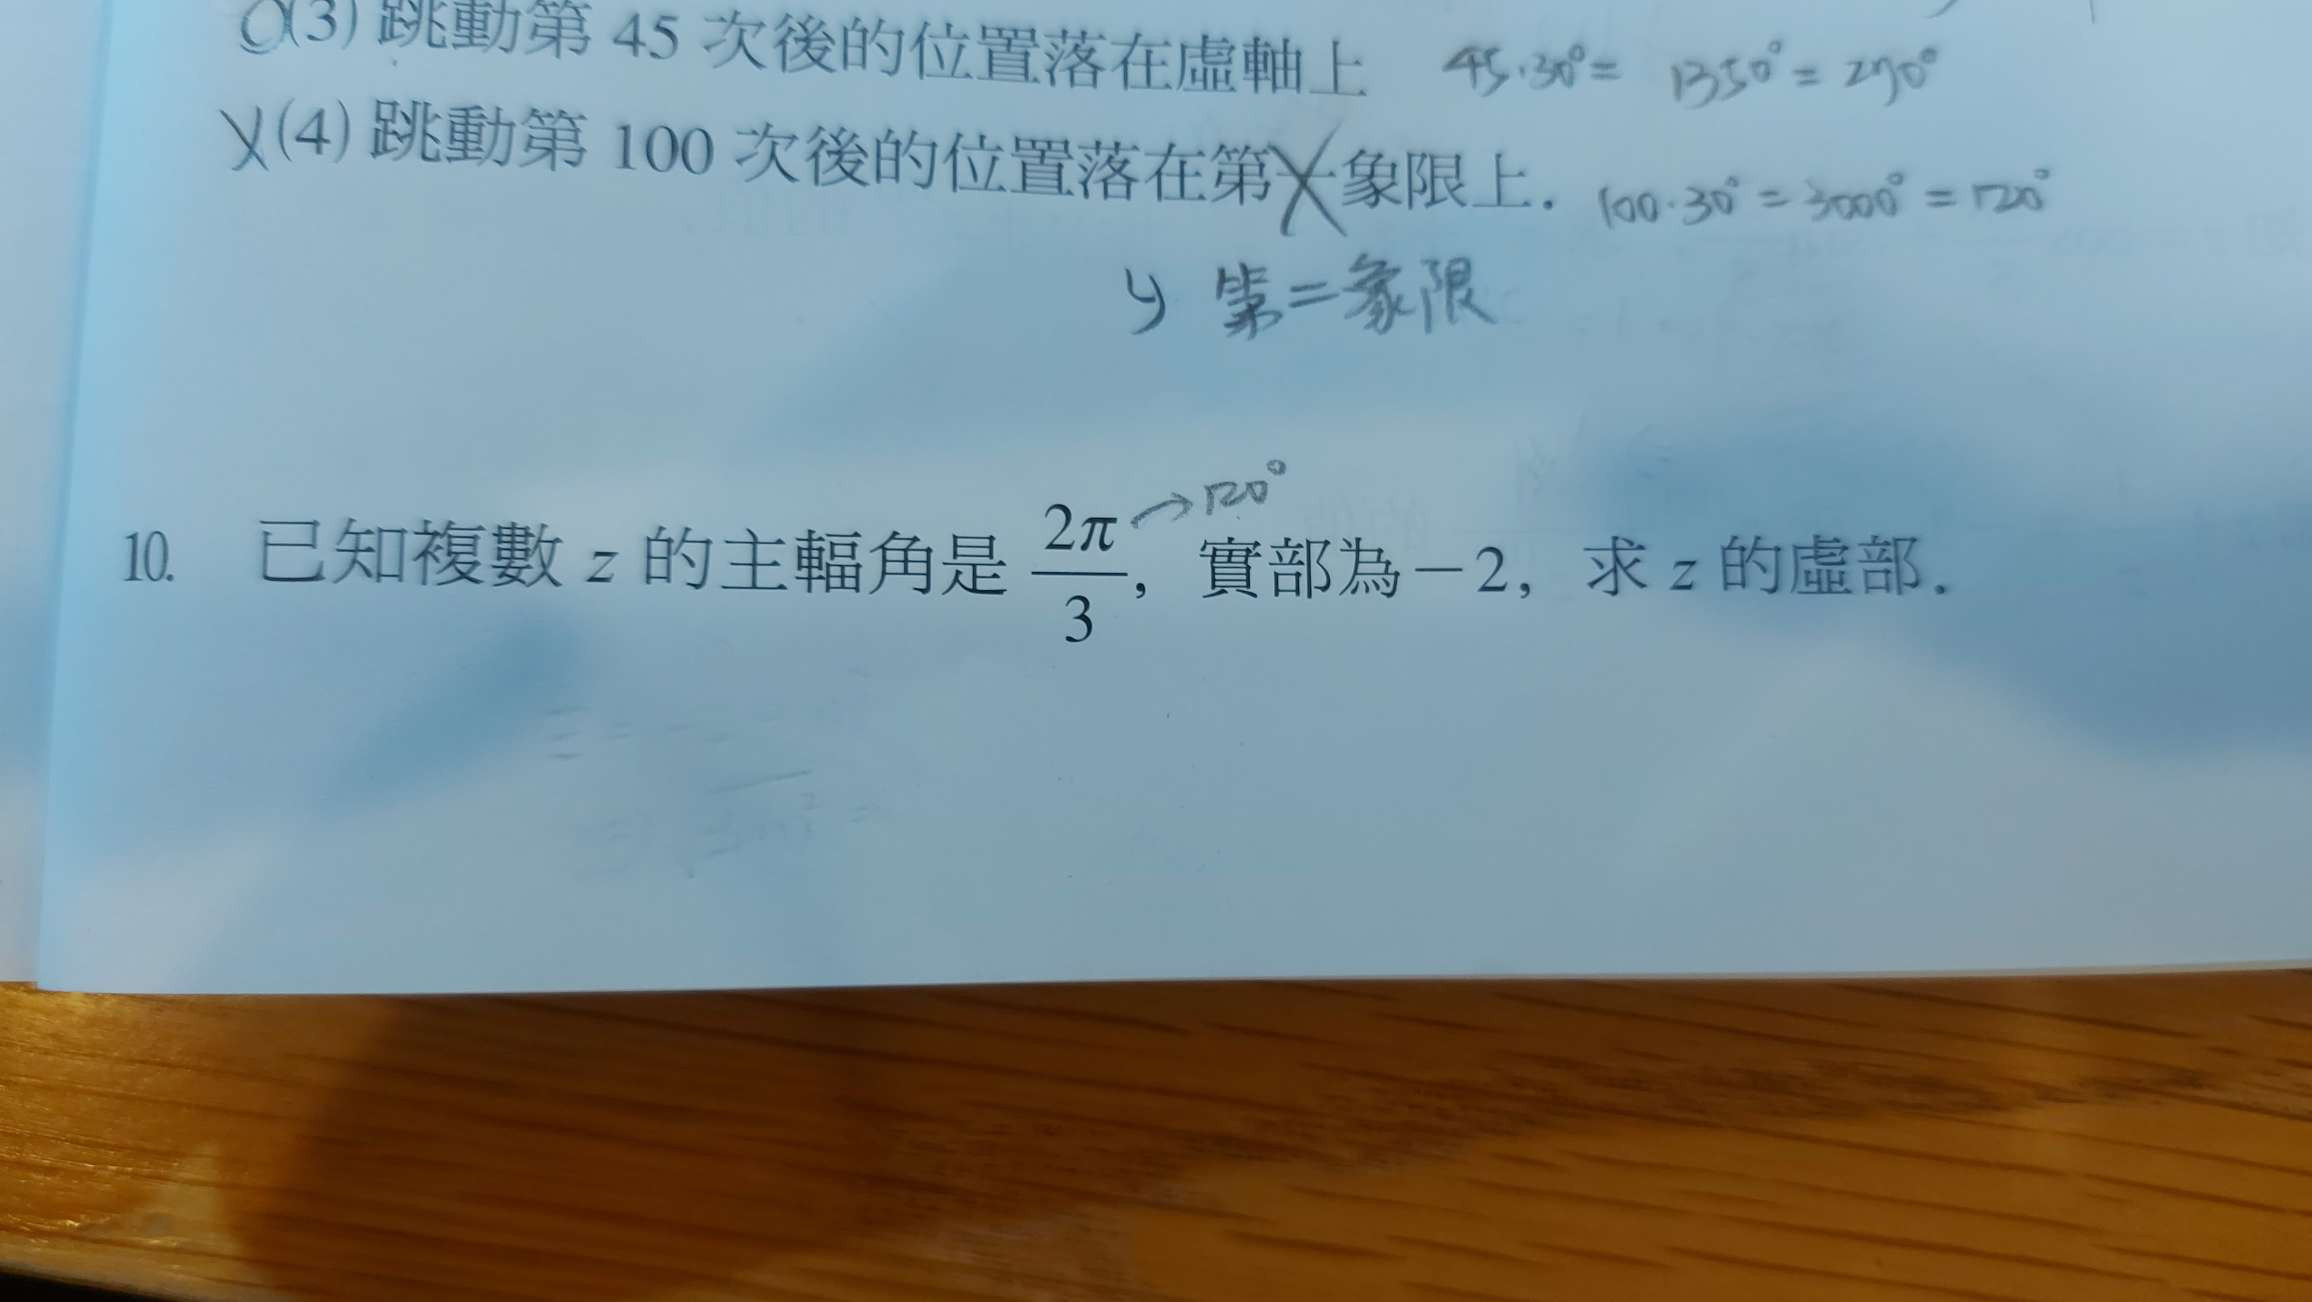 (3) 跳動第 45 次後的位置落在虛軸上 45·30°= 1350° = 270°
X(4) 跳動第 100 次後的位置落在第一象限上. 100·30° = 3000° = 120°
第二象限
→120°
10. 已知複數 z 的主輻角是 2π/3, 實部為-2, 求 z 的虛部.